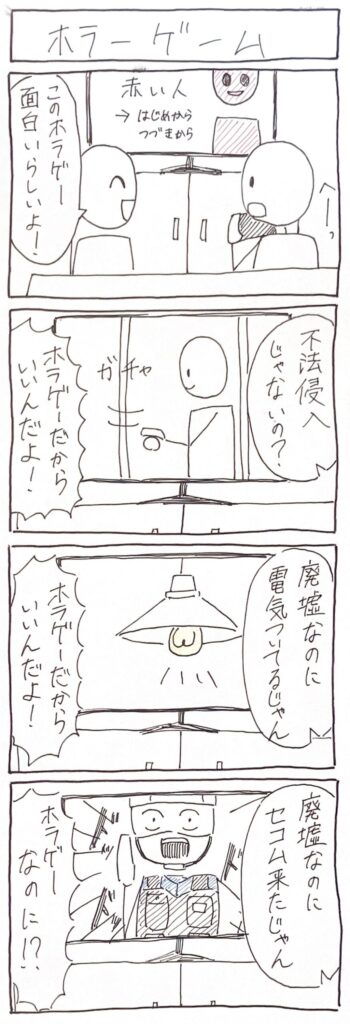 ホラーゲーム
赤い人
→はじめから
つづきから
へーっ
このホラゲー
面白いらしいよ!
不法侵入
じゃないの?
ガチャ
ホラゲーだから
いいんだよ!
廃墟なのに
電気ついてるじゃん
ホラゲーだから
いいんだよ!
廃墟なのに
セコム来たじゃん
ホラゲー
なのに!?